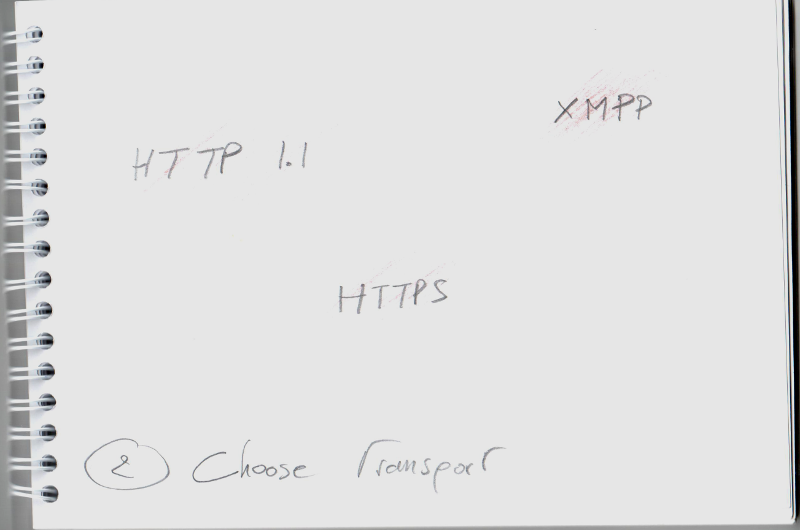 XMPP
HTTP 1.1
HTTPS
2 Choose Transport